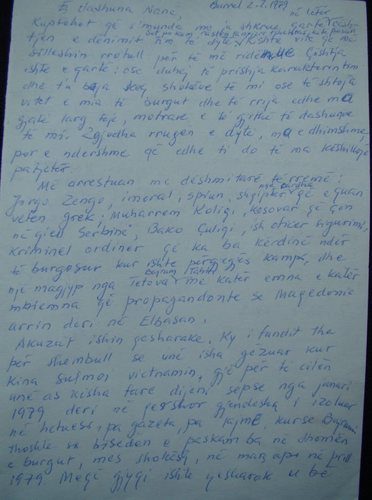 E dashura Nanë, Burrel 2.2.1979
Kuptohet që i munda mos ja shkruaj në letër
tjen e dënimit tim të dytë. Kishte vite që më
silleshin rrotull për të më ridënue. Çështja
ishte e qartë: ose duhej të prishja karakterin tim
dhe t'u bëja keq shokëve të mi ose të shtoja
vitet e mia të burgut dhe të rrija edhe ma
gjatë larg teje, motrave e të gjithë të dashurve
të mi. Zgjodha rrugën e dytë, ma e dhimshme
por e ndershme që edhe ti do të ma këshilloje
patjetër.
Më arrestuan me dëshmitarë të rremë:
Jorgo Zengo, imoral, spiun, shqiptar nga Dardha që e quan
veten grek; Muharrem Koliqi, kosovar që çon
në qiell Serbinë, Bako Çuligi, ish oficer sigurimi,
kriminel ordiner që ka ba kërdinë ndër
të burgosur kur ishte përgjegjës kampi, dhe
një magjyp nga Tetova Bajram Tahiri me katër emna e katër
mbiemna që propagandonte se Maqedonia
arrin deri në Elbasan.
Akuzat ishin qesharake. Ky i fundit tha
për shembull se unë isha gëzuar kur
Kina sulmoi Vietnamin, gjë për të cilën
unë as kisha fare dijeni sepse nga janari
1979 deri në qershor gjendesha i izoluar
në hetuesi, pa gazeta, pa lajme, kurse Bajrami
thoshte se bisedën e paskam ba në dhomën
e burgut, mes shokësh, në mars apo në prill
1979. Megjithëse gjyqi ishte qesharak u bë